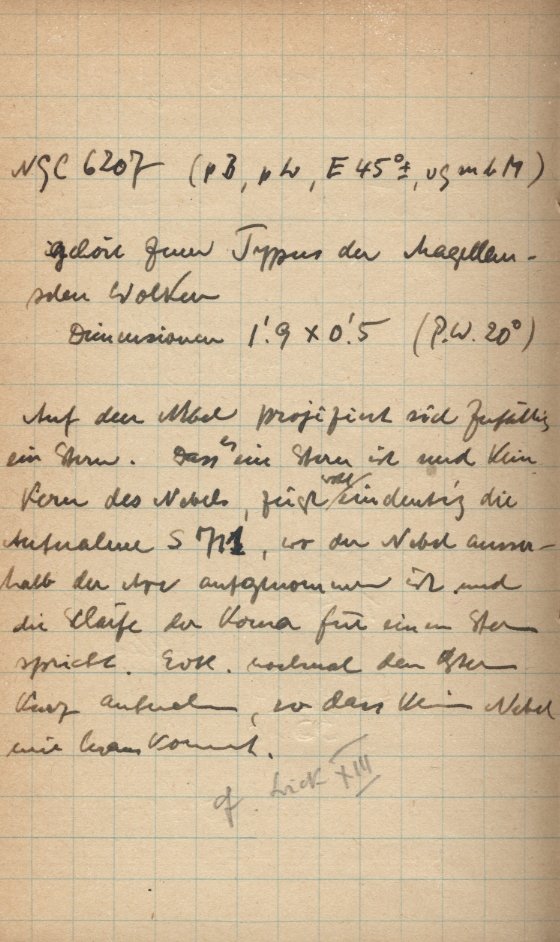 NGC 6207 (pB, pL, E 45°±, vgmbM)
gehört zum Typus der Magellan-
schen Wolken
Dimensionen 1'.9 × 0'.5 (P.W. 20°)
Auf den Nebel projiziert sich zufällig
ein Stern. Dass es ein Stern ist und kein
Kern des Nebels, zeigt wohl eindeutig die
Aufnahme S 711, wo der Nebel ausser-
halb der Axe aufgenommen ist und
die Schärfe der Koma für einen Stern
spricht. Evtl. nochmal den Stern
kurz aufnehmen, so dass kein Nebel
mit kommt.
cf. Lick XIII